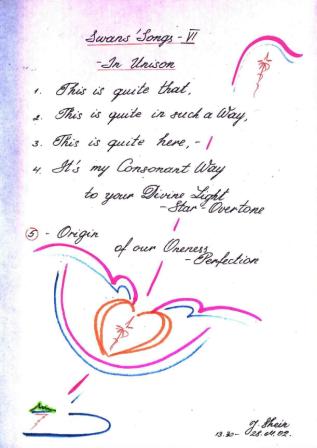 Swans' Songs - VI
- In Unison
1. This is quite that,
2. This is quite in such a Way,
3. This is quite here, -
4. It's my Consonant Way
to your Divine Light
- Star - Overtone
5 - Origin
of our Oneness
- Perfection
13.30 -